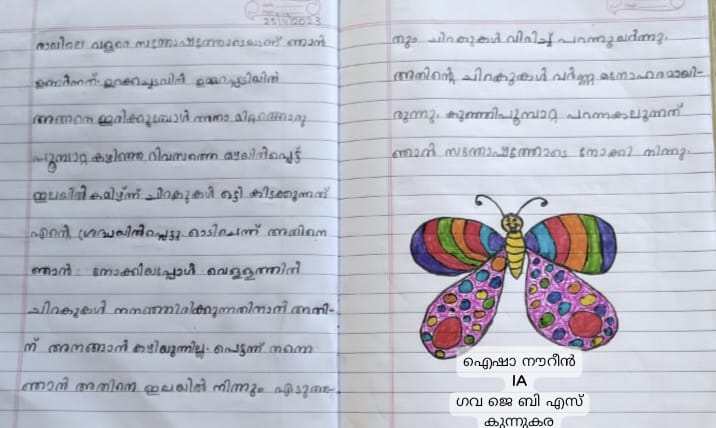 25/11/2023
രാവിലെ വളരെ സന്തോഷത്തോടെയാണ് ഞാൻ
ഉണർന്നത്. ഉറക്കച്ചടവിൽ ഉമ്മറപ്പടിയിൽ
അങ്ങനെ ഇരിക്കുമ്പോൾ മുറ്റത്തൊരു
പൂമ്പാറ്റ കഴിഞ്ഞ ദിവസത്തെ മഴയിൽപ്പെട്ട്
ഇലയിൽ കമിഴ്ന്ന് ചിറകുകൾ ഒട്ടി കിടക്കുന്നത്
എന്റെ ശ്രദ്ധയിൽപ്പെട്ടു. ഓടിചെന്ന് അതിനെ
ഞാൻ നോക്കിയപ്പോൾ വെള്ളത്തിൽ
ചിറകുകൾ നനഞ്ഞിരിക്കുന്നതിനാൽ അതി-
ന് അനങ്ങാൻ കഴിയുന്നില്ല. പെട്ടന്ന് തന്നെ
ഞാൻ അതിനെ ഇലയിൽ നിന്നും എടുത്തു.
തും ചിറകുകൾ വിരിച്ച് പറന്നുയർന്നു.
അതിന്റെ ചിറകുകൾ വർണ്ണ മനോഹരമായി-
രുന്നു. കുഞ്ഞിപൂമ്പാറ്റ പറന്നകലുന്നത്
ഞാൻ സന്തോഷത്തോടെ നോക്കി നിന്നു.
ഐഷാ നൗറീൻ
IA
ഗവ ജെ ബി എസ്
കുന്നുകര